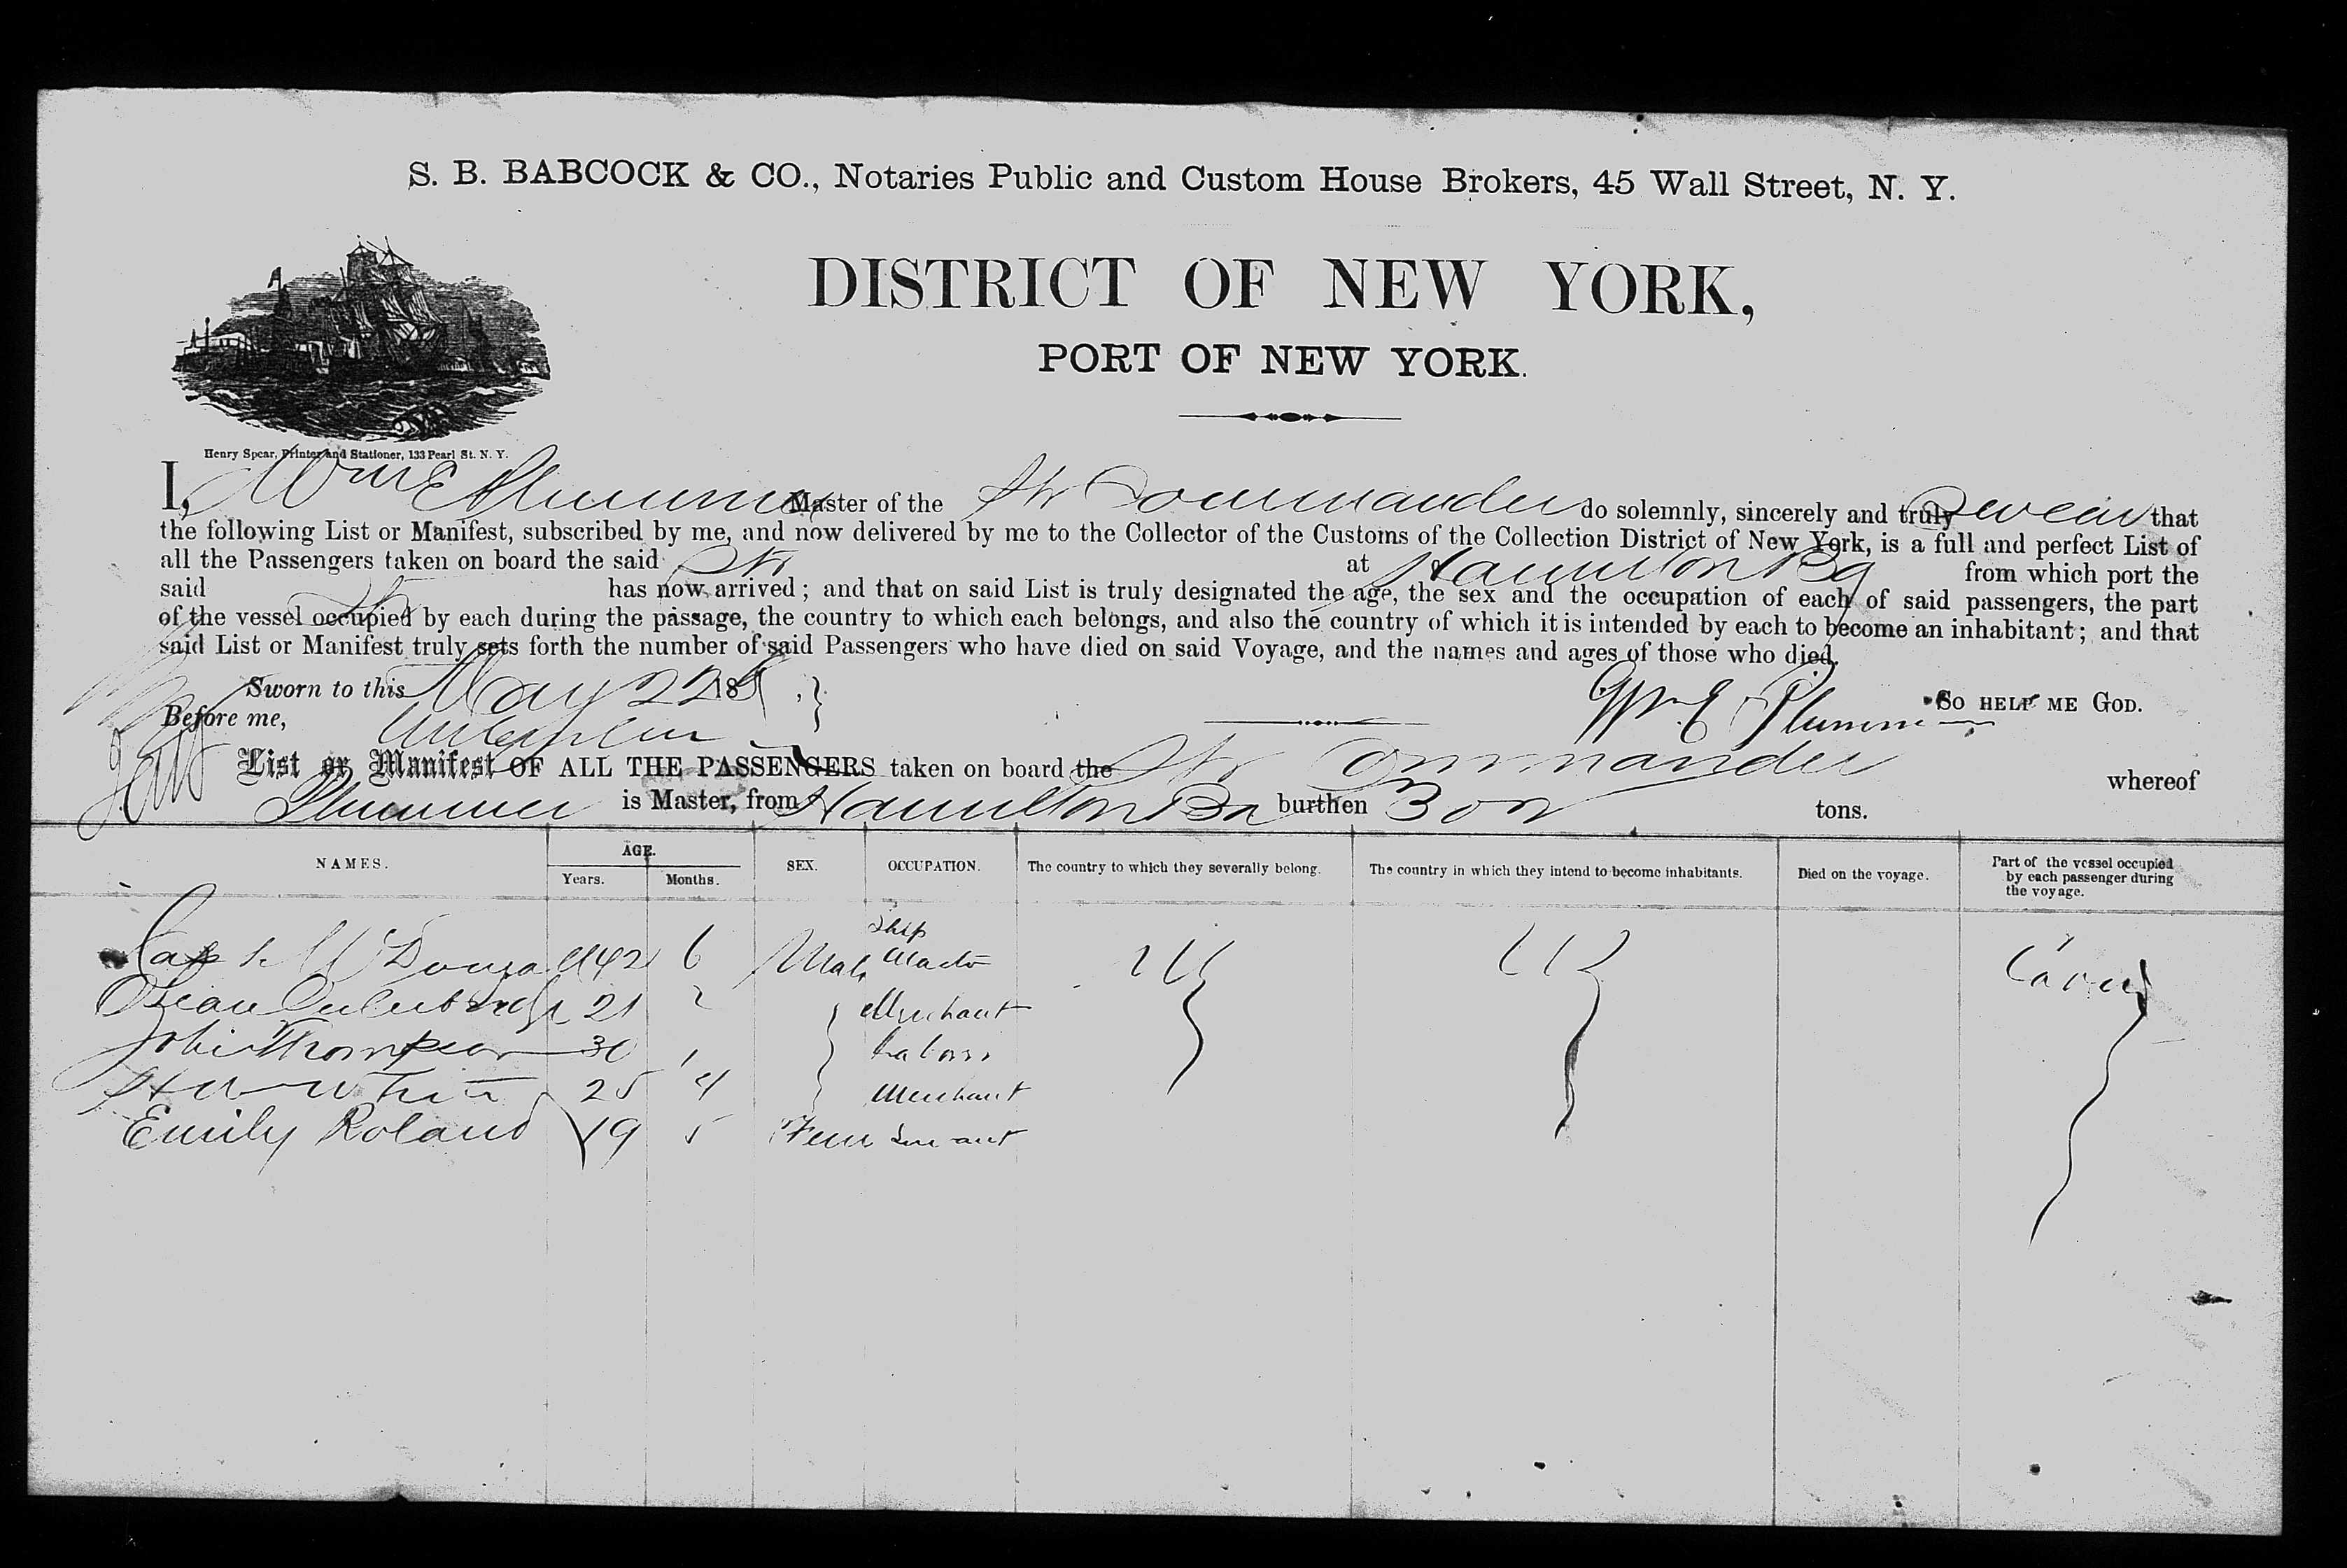 S. B. BABCOCK & CO., Notaries Public and Custom House Brokers, 45 Wall Street, N. Y.
DISTRICT OF NEW YORK,
PORT OF NEW YORK.
Henry Spear, Printer and Stationer, 133 Pearl St. N. Y.
I, Wm E Plummer Master of the Str Commander do solemnly, sincerely and truly Swear that
the following List or Manifest, subscribed by me, and now delivered by me to the Collector of the Customs of the Collection District of New York, is a full and perfect List of
all the Passengers taken on board the said Str at Hamilton Ba from which port the
said Str has now arrived; and that on said List is truly designated the age, the sex and the occupation of each of said passengers, the part
of the vessel occupied by each during the passage, the country to which each belongs, and also the country of which it is intended by each to become an inhabitant; and that
said List or Manifest truly sets forth the number of said Passengers who have died on said Voyage, and the names and ages of those who died.
Sworn to this May 22 18 Wm E Plummer SO HELP ME GOD.
Before me,
List or Manifest OF ALL THE PASSENGERS taken on board the Str Commander whereof
Plummer is Master, from Hamilton Ba burthen tons.
NAMES. AGE. SEX. OCCUPATION. The country to which they severally belong. The country in which they intend to become inhabitants. Died on the voyage. Part of the vessel occupied by each passenger during the voyage.
Years. Months.
42 6 Male Ship Master US US Cabin
21 2 Merchant
John Thompson 30 Labor
White 25 4 Merchant
Emily Roland 19 5 Fem Servant